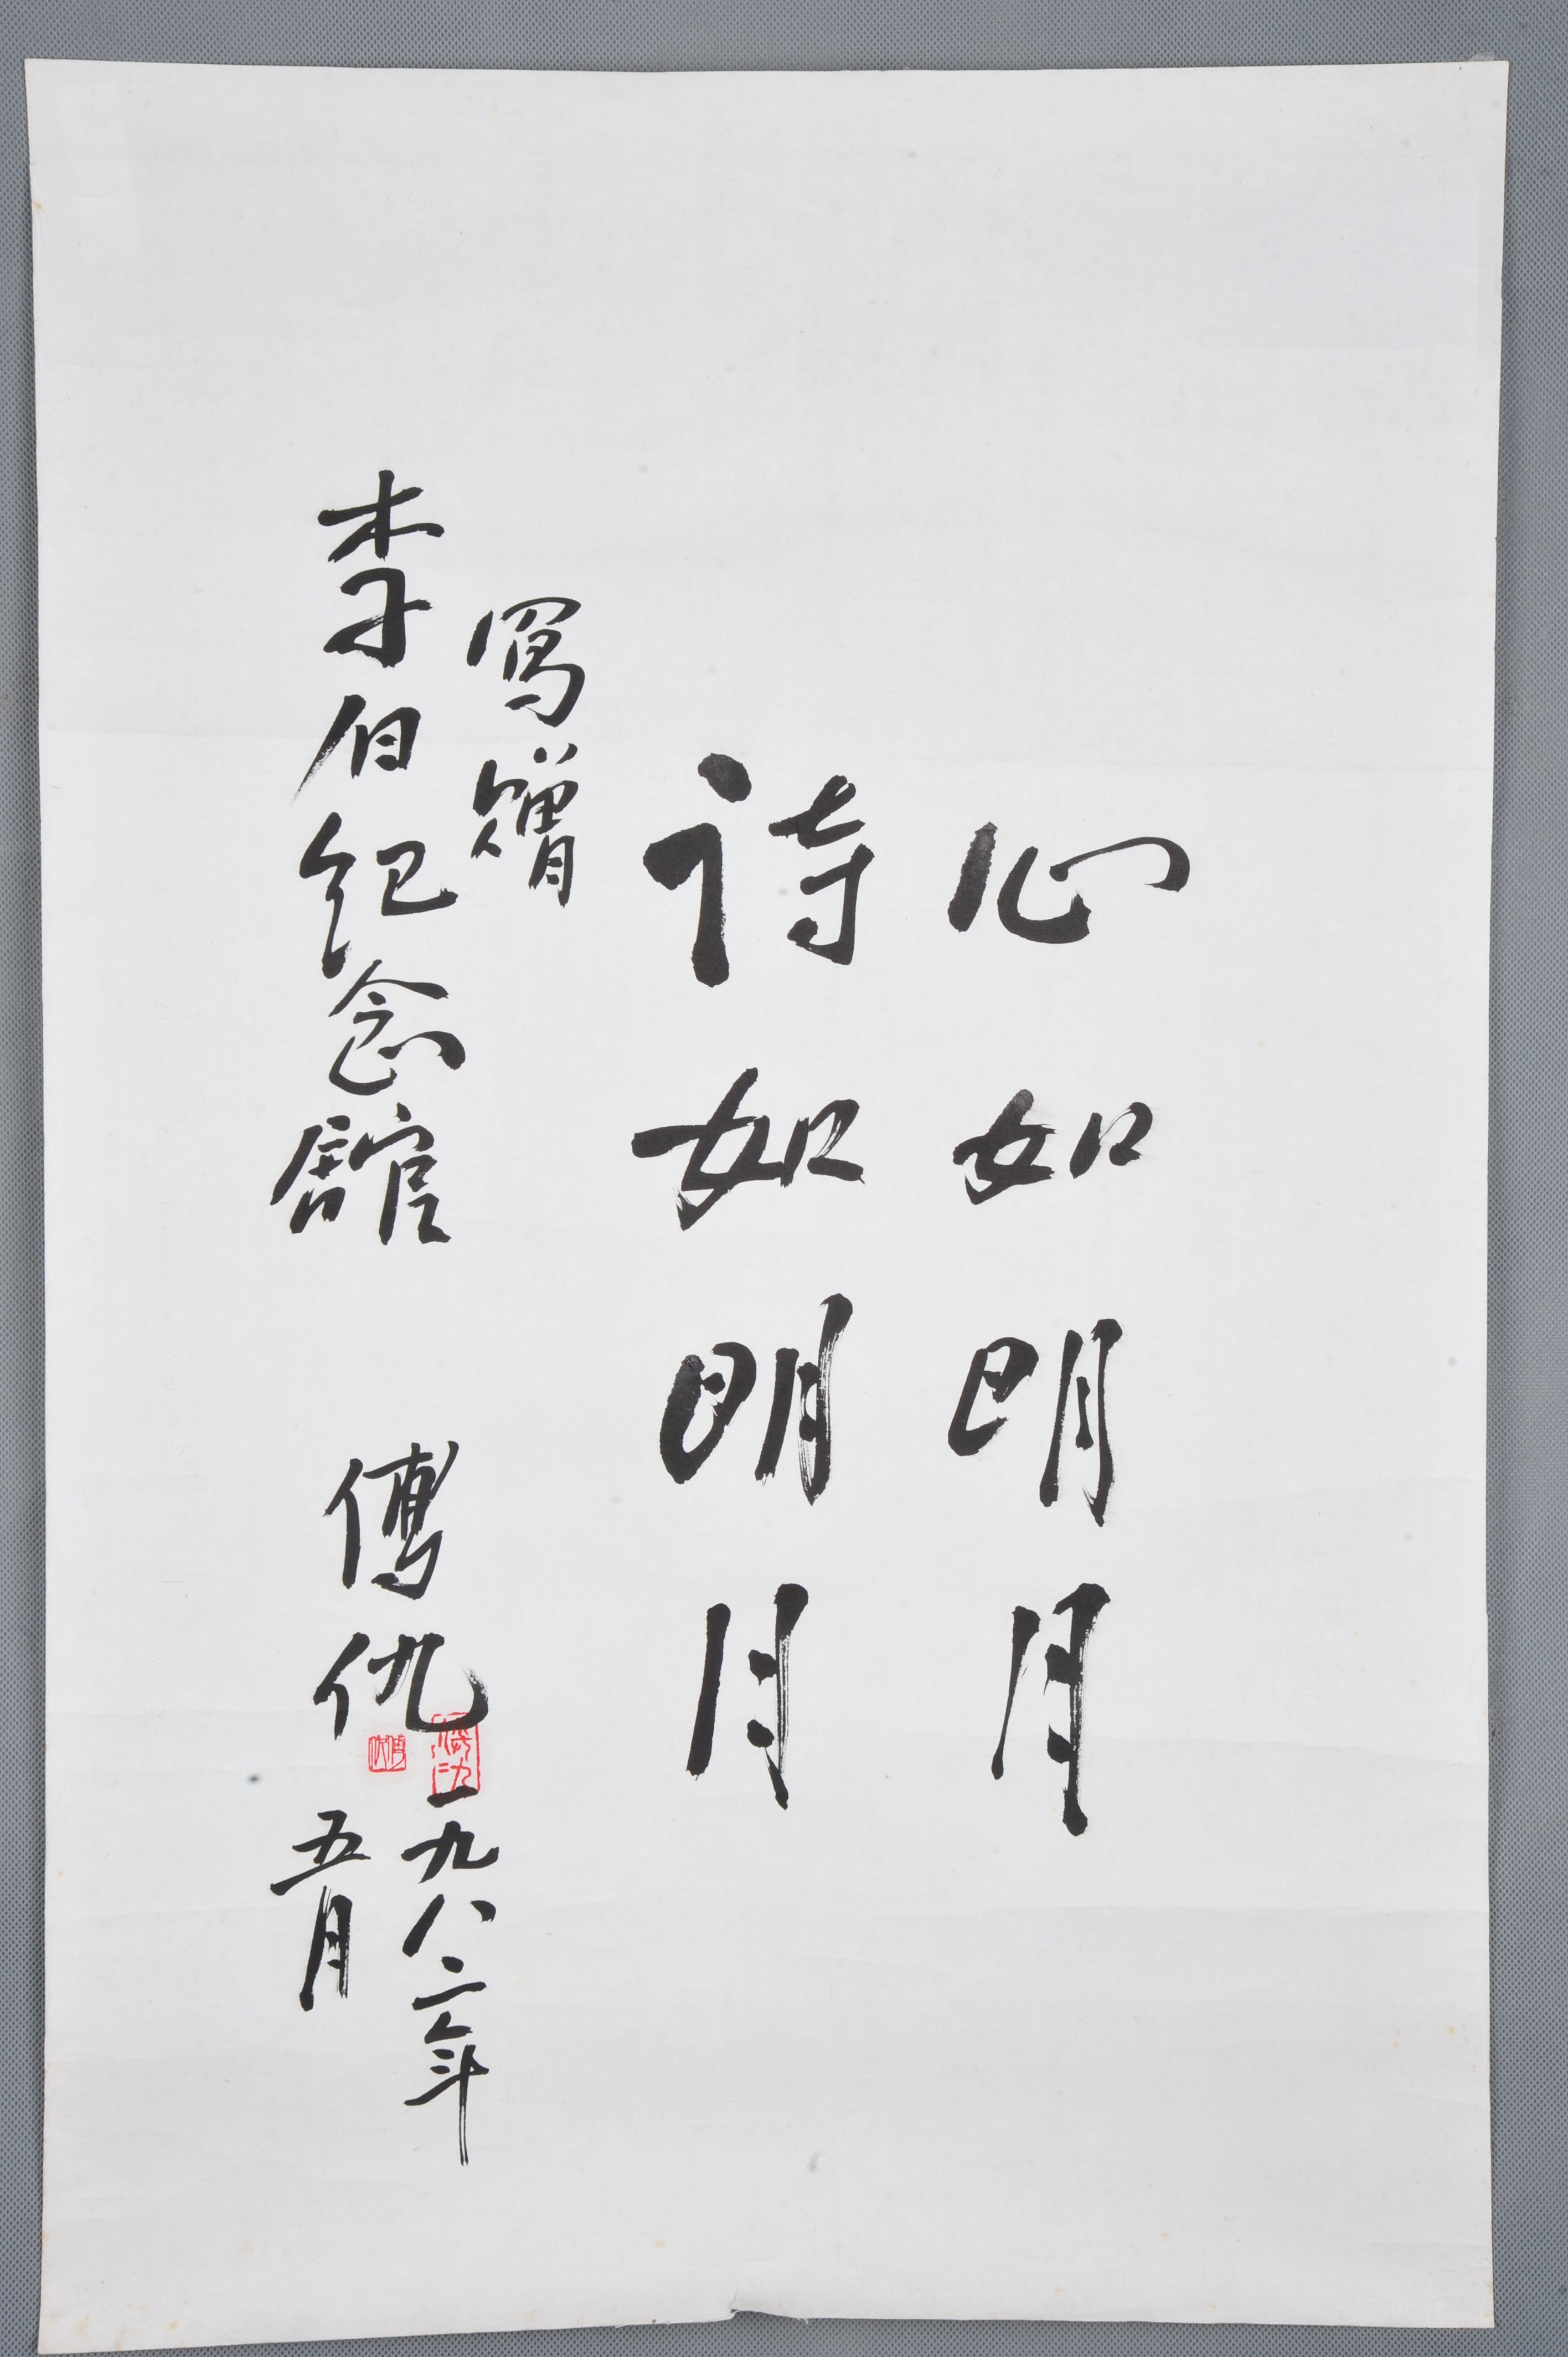 心如明月
诗如明月
寫贈
李白纪念館
傅仇
一九八二年
五月